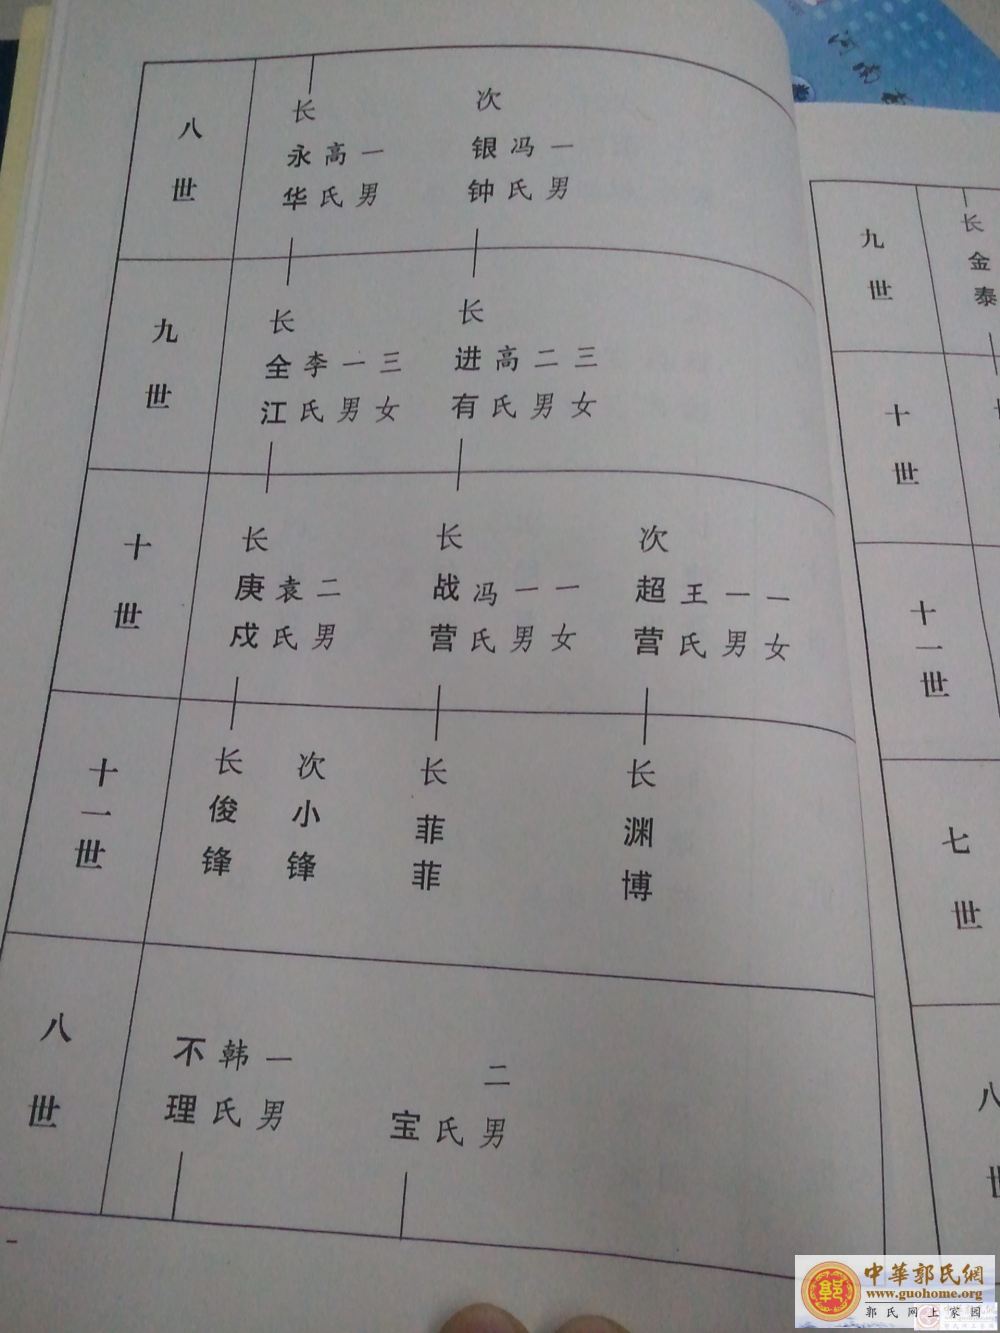 八世
长 次
永 高 一 银 冯 一
华 氏 男 钟 氏 男
九世
长 长
全 李 一 三 进 高 二 三
江 氏 男 女 有 氏 男 女
十世
长 长 次
庚 袁 二 战 冯 一 一 超 王 一 一
戍 氏 男 营 氏 男 女 营 氏 男 女
十一世
长 次 长 长
俊 小 菲 渊
锋 锋 菲 博
八世
不 韩 一 二
理 氏 男 宝 氏 男
九世
长
金
泰
十世
十一世
七世
八
中華郭氏網
www.guohome.org
郭氏网上家园